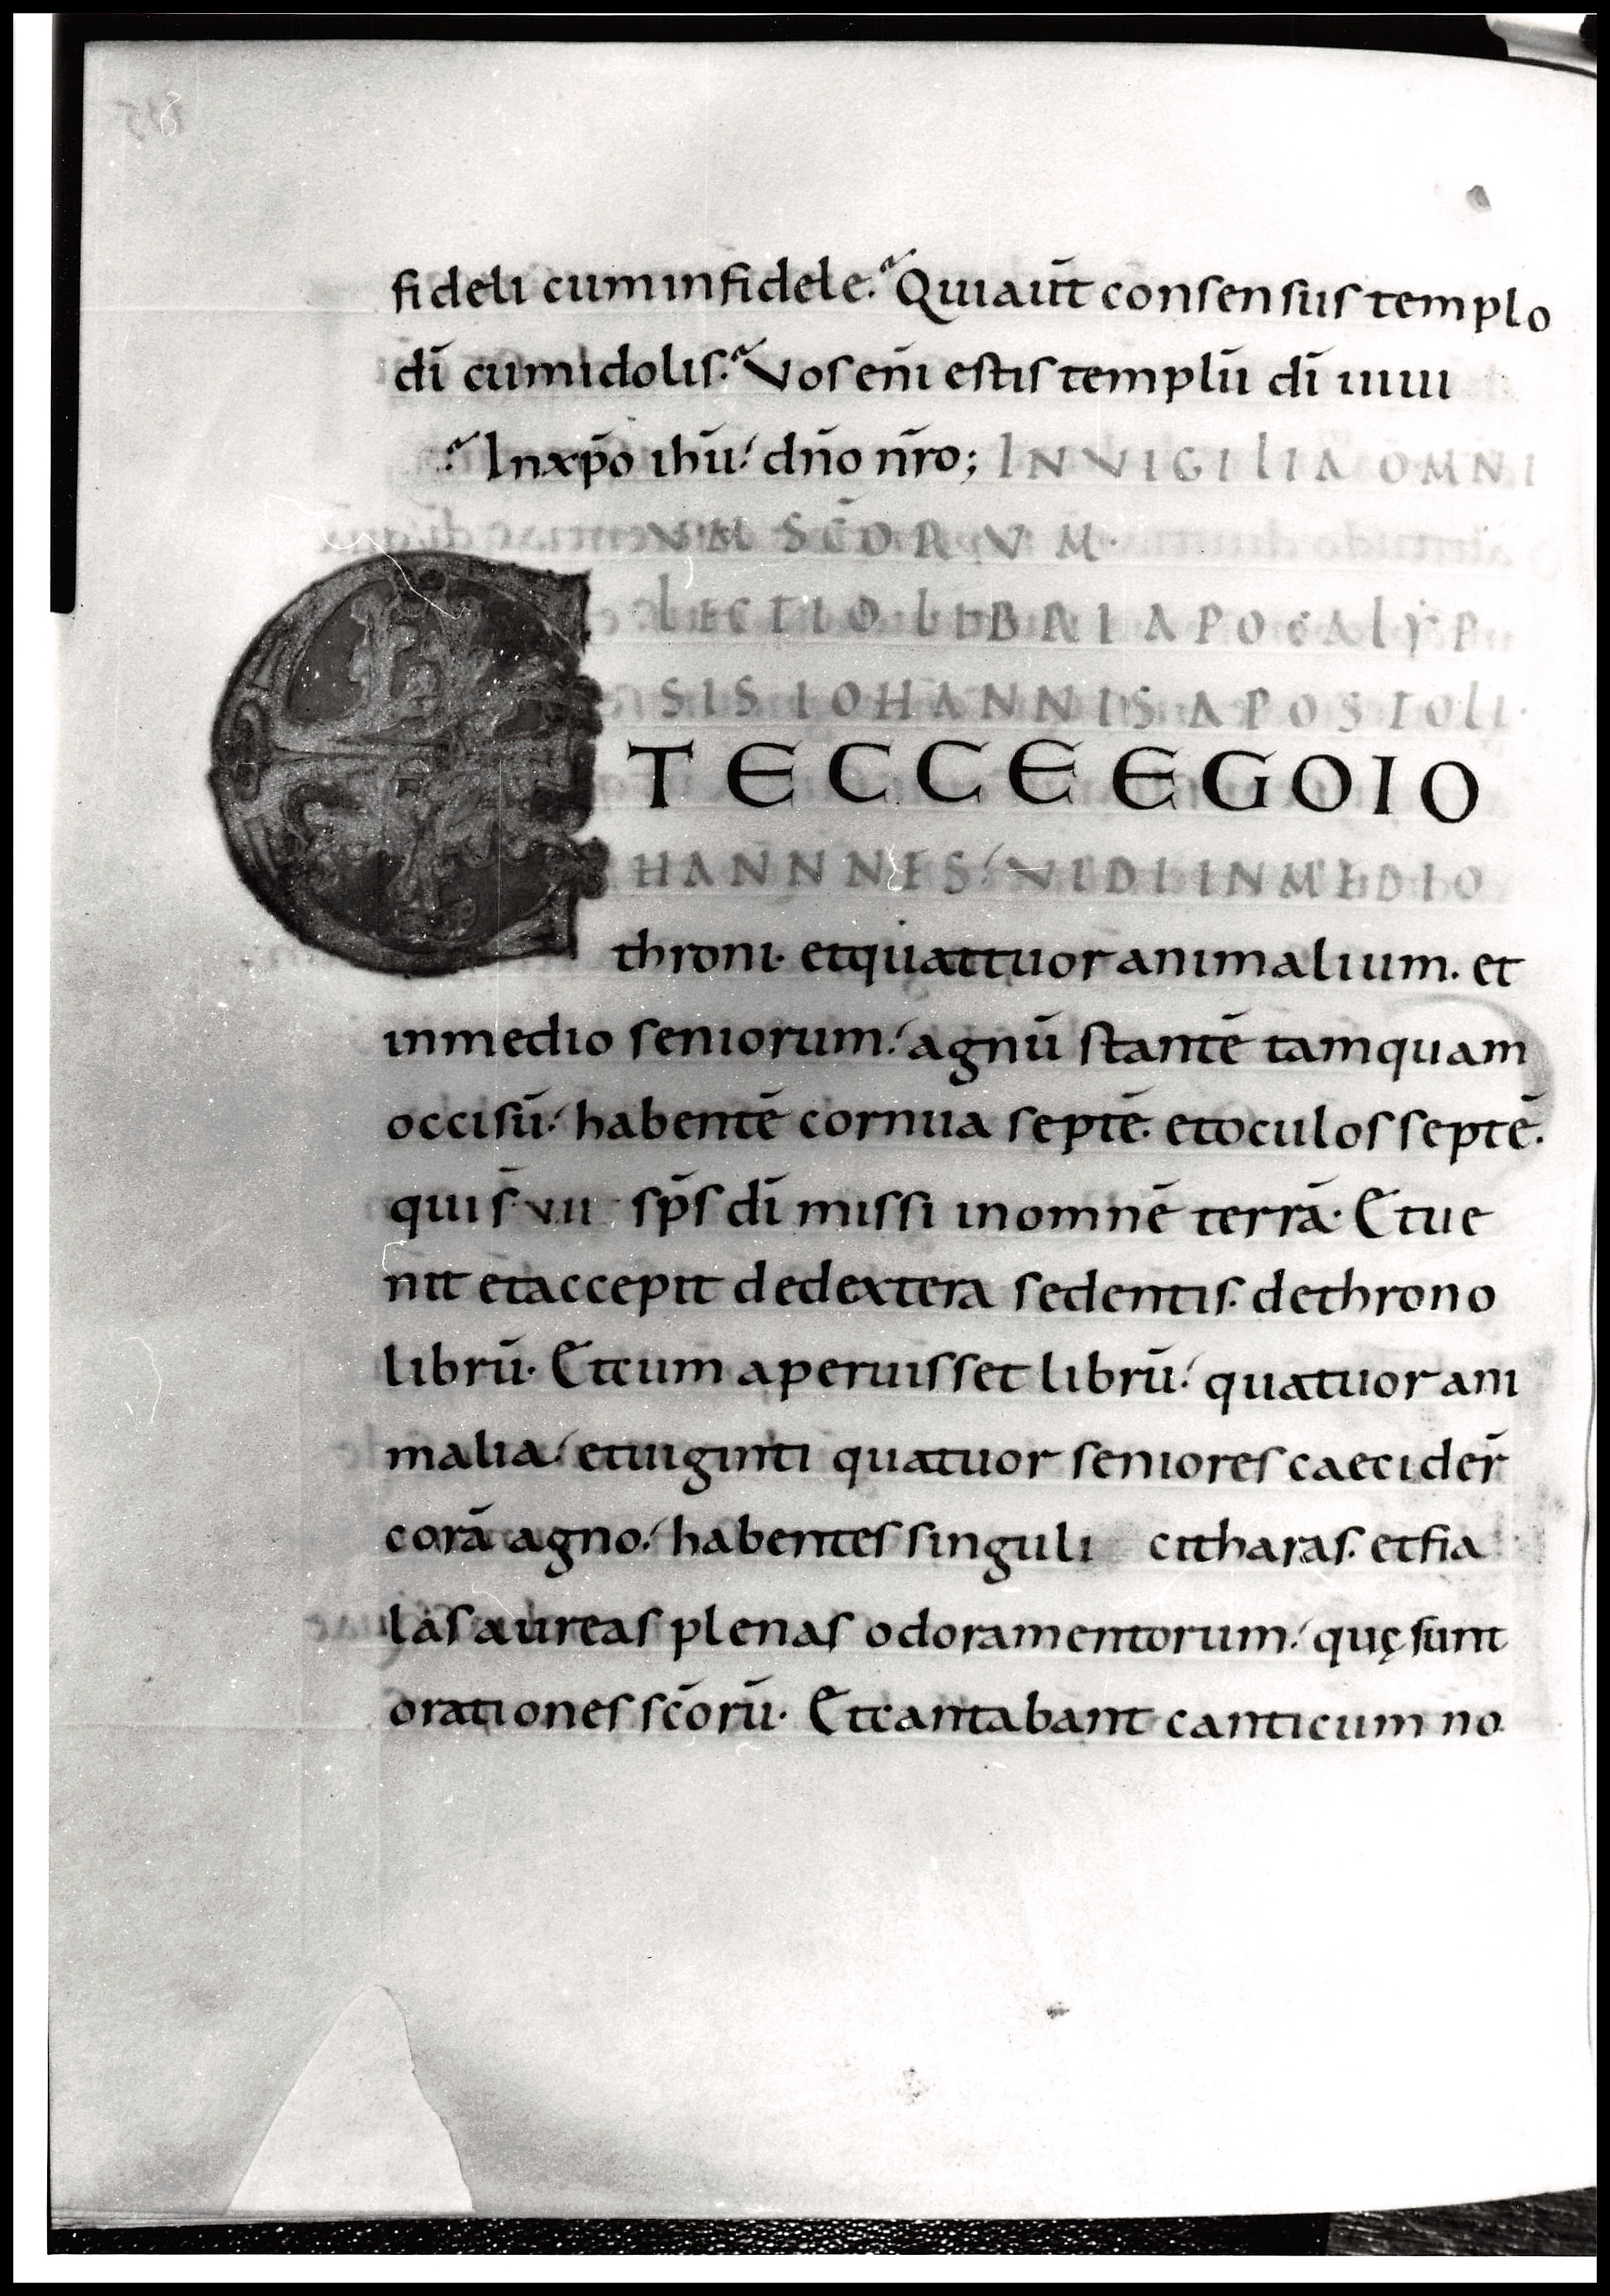 fideli cuminfidele. Quiaut̄ consensus templo
dī cumidolis. Vos enī estis templū dī uiui
Inxp̄o ihū. dn̄o nr̄o; IN VIGILIA OMNI
VM SC̄ORVM.
LECTIO LIBRI APOCALYP
SIS IOHANNIS APOSTOLI.
ETECCE EGOIO
HANNNES. VIDI INMEDIO
throni. etquattuor animalium. et
inmedio seniorum. agnū stantē tamquam
occisū. habentē cornua septē. etoculos septē.
quis̄ vii sp̄s dī missi inomnē terrā. Etue
nit etaccepit dedextera sedentis. dethrono
librū. Etcum aperuisset librū. quatuor ani
malia. etuiginti quatuor seniores caecider̄
corā agno. habentes singuli citharas. etfia
las aureas plenas odoramentorum. quę sunt
orationes sc̄orū. Etcantabant canticum no